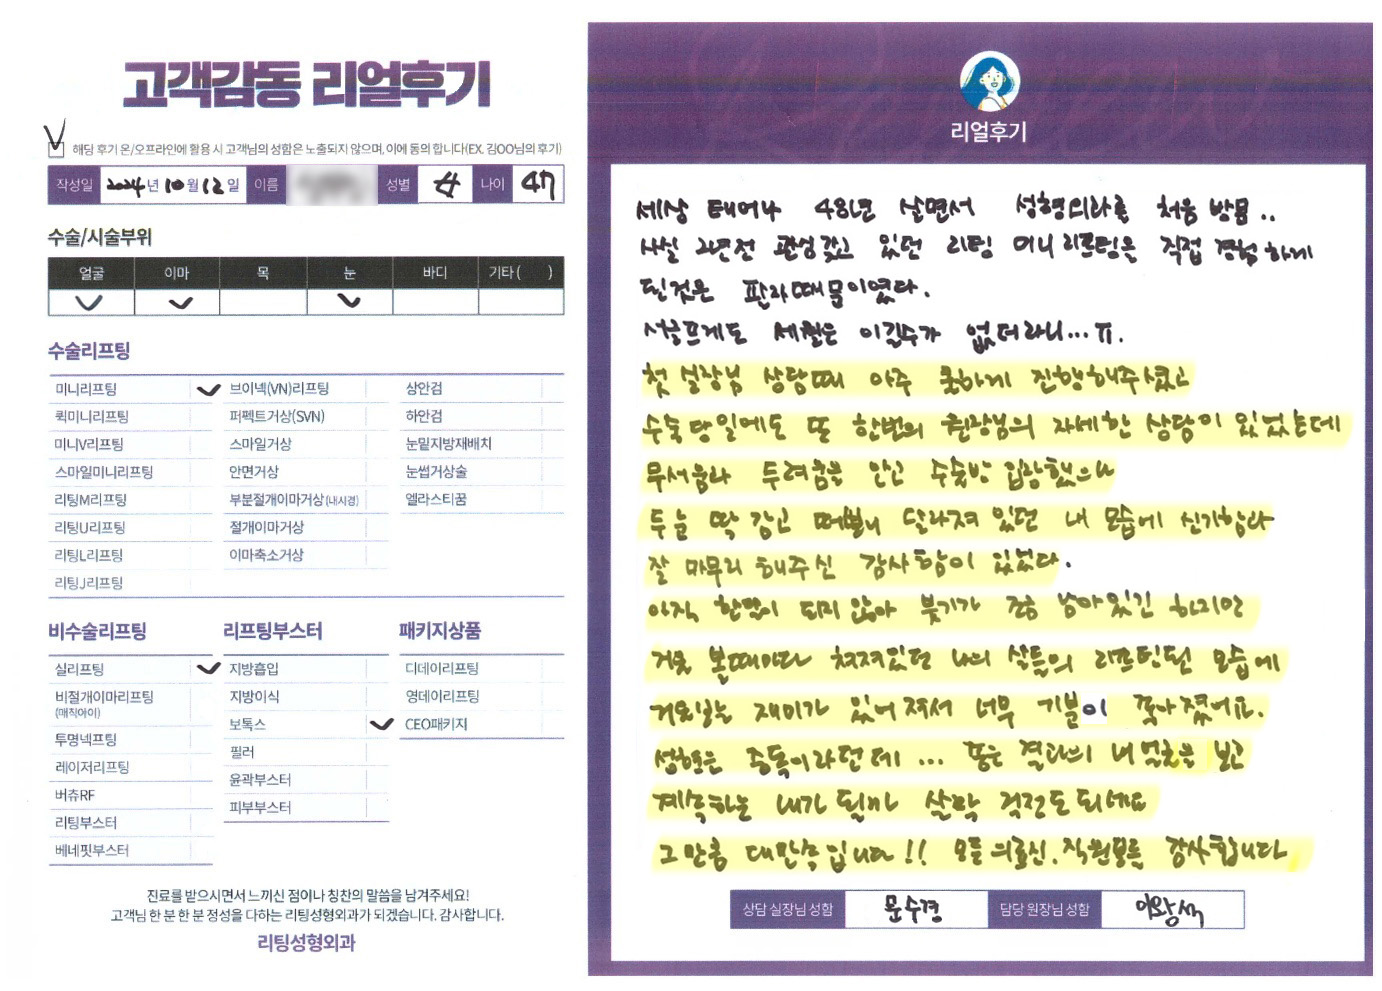 고객감동 리얼후기
해당 후기 온/오프라인에 활용 시 고객님의 성함은 노출되지 않으며, 이에 동의 합니다(EX. 김OO님의 후기)
작성일 2024년 10월 12일 이름 성별 女 나이 47
수술/시술부위
얼굴 이마 목 눈 바디 기타 ( )
수술리프팅
미니리프팅 브이넥(VN)리프팅 상안검
퀵미니리프팅 퍼펙트거상(SVN) 하안검
미니V리프팅 스마일거상 눈밑지방재배치
스마일미니리프팅 안면거상 눈썹거상술
리팅M리프팅 부분절개이마거상(내시경) 엘라스티꿈
리팅U리프팅 절개이마거상
리팅L리프팅 이마축소거상
리팅J리프팅
비수술리프팅 리프팅부스터 패키지상품
실리프팅 지방흡입 디데이리프팅
비절개이마리프팅 지방이식 영데이리프팅
(매직아이)
보톡스 CEO패키지
투명넥프팅 필러
레이저리프팅 윤곽부스터
버츄RF 피부부스터
리팅부스터
베네핏부스터
진료를 받으시면서 느끼신 점이나 칭찬의 말씀을 남겨주세요!
고객님 한 분 한 분 정성을 다하는 리팅성형외과가 되겠습니다. 감사합니다.
리팅성형외과
리얼후기
세상 태어나 48년 살면서 성형외과를 처음 방문..
사실 2년전 관심갖고 있던 리팅 미니리프팅을 직접 경험하게
된것은 판자때문이였다.
서글프게도 세월은 이길수가 없더라니...ㅠ.
첫 실장님 상담때 아주 쿨하게 진행해주셨고
수술당일에도 또 한번의 원장님의 자세한 상담이 있었는데
무서움과 두려움을 안고 수술방 입장했으나
두눈 딱 감고 떠보니 달라져 있던 내 모습에 신기함과
잘 마무리 해주신 감사함이 있었다.
아직 한달이 되지 않아 붓기가 좀 남아있긴 하지만
거울 볼때마다 쳐져있던 나의 살들의 리프팅된 모습에
거울보는 재미가 있어져서 너무 기분이 좋아졌어요.
성형은 중독이라던데... 좋은 결과의 내 얼굴을 보고
계속하는 내가 될까 살짝 걱정도 되네요
그만큼 대만족입니다!! 모든 의료진, 직원분들 감사합니다
상담 실장님 성함 문수경 담당 원장님 성함 이왕석